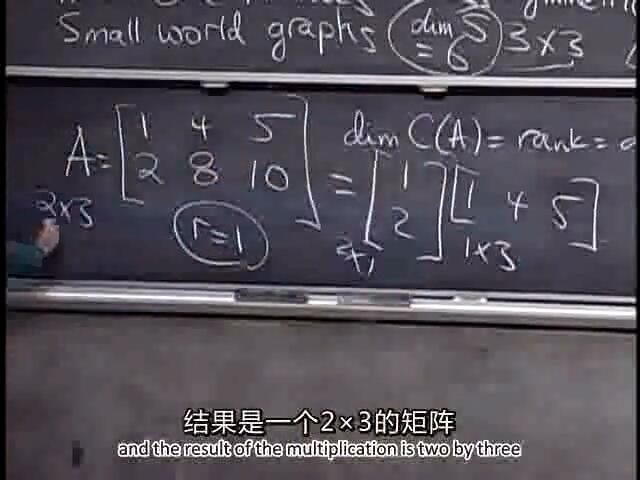 Small world graphs dim = 6 5 3×3
A = [1 4 5
2 8 10] = [1
2] [1 4 5]
dim C(A) = rank =
2×3
r=1
2×1
1×3
结果是一个2×3的矩阵
and the result of the multiplication is two by three